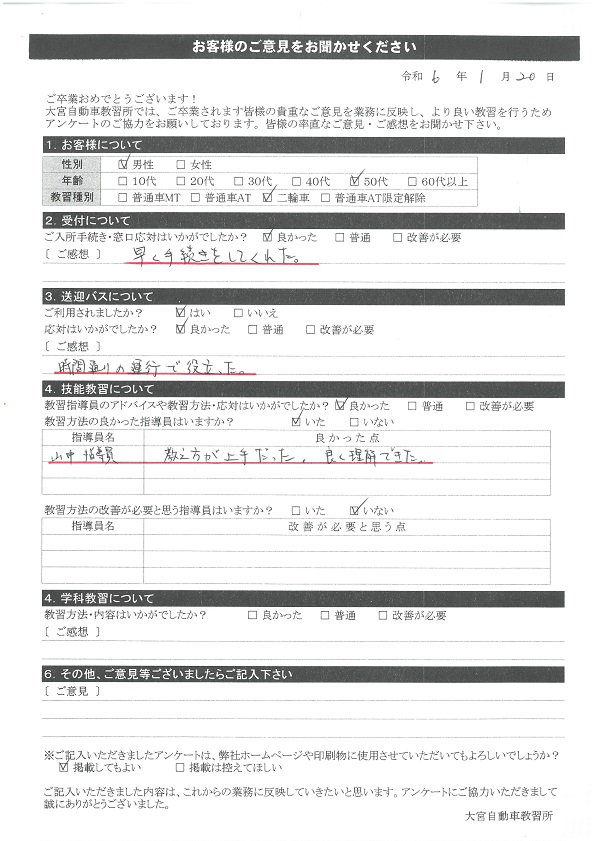 お客様のご意見をお聞かせください
令和 6 年 1 月 20 日
ご卒業おめでとうございます！
大宮自動車教習所では、ご卒業されます皆様の貴重なご意見を業務に反映し、より良い教習を行うため
アンケートのご協力をお願いしております。皆様の率直なご意見・ご感想をお聞かせ下さい。
1. お客様について
性別 ☑男性 □女性
年齢 □10代 □20代 □30代 □40代 ☑50代 □60代以上
教習種別 □普通車MT □普通車AT ☑二輪車 □普通車AT限定解除
2. 受付について
ご入所手続き・窓口応対はいかがでしたか？ ☑良かった □普通 □改善が必要
[ ご感想 ] 早く手続きをしてくれた。
3. 送迎バスについて
ご利用されましたか？ ☑はい □いいえ
応対はいかがでしたか？ ☑良かった □普通 □改善が必要
[ ご感想 ]
時間通りの運行で役立った。
4. 技能教習について
教習指導員のアドバイスや教習方法・応対はいかがでしたか？ ☑良かった □普通 □改善が必要
教習方法の良かった指導員はいますか？ ☑いた □いない
指導員名 良かった点
山中指導員 教え方が上手だった。良く理解できた。
教習方法の改善が必要と思う指導員はいますか？ □いた ☑いない
指導員名 改善が必要と思う点
4. 学科教習について
教習方法・内容はいかがでしたか？ □良かった □普通 □改善が必要
[ ご感想 ]
6. その他、ご意見等ございましたらご記入下さい
[ ご意見 ]
※ご記入いただきましたアンケートは、弊社ホームページや印刷物に使用させていただいてもよろしいでしょうか？
☑掲載してもよい □掲載は控えてほしい
ご記入いただきました内容は、これからの業務に反映していきたいと思います。アンケートにご協力いただきまして
誠にありがとうございました。
大宮自動車教習所